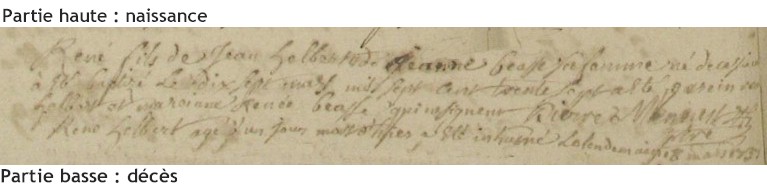 Partie haute : naissance
René fils de Jean Helbert et de Jeanne beasse sa femme né de ce jour
a été baptizé le dix sept mars mil sept cent trente sept a été parein
helbert et mareinne Renée beasse qui ne signent Pierre
René helbert agé d'un jour mort hier a été inhumé le lendemain 18 mars
Partie basse : décès